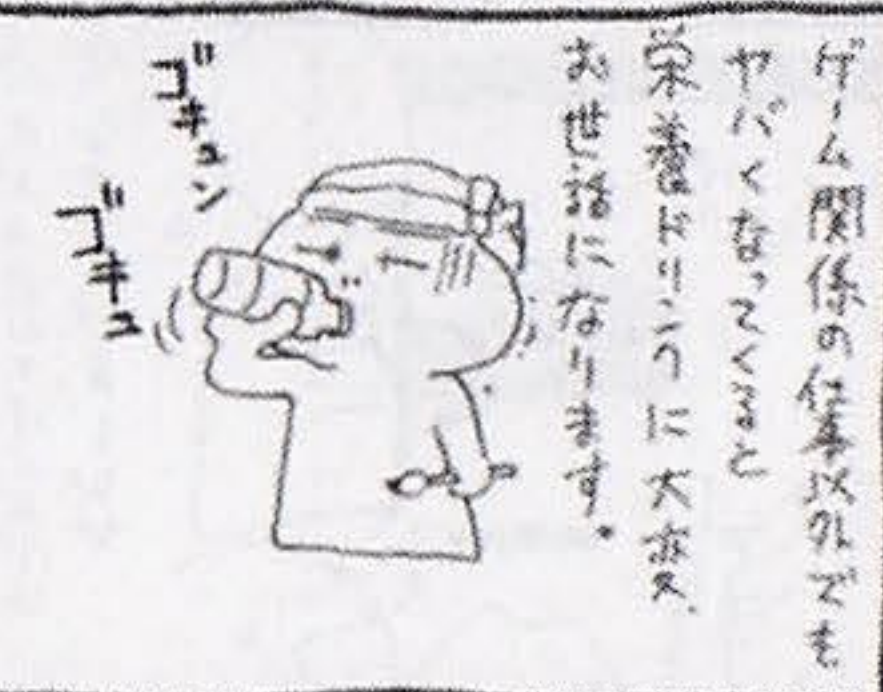 ゲーム関係の仕事以外でも
ヤバくなってくると
栄養ドリンクに大変
お世話になります。
ゴキュン
ゴキュ